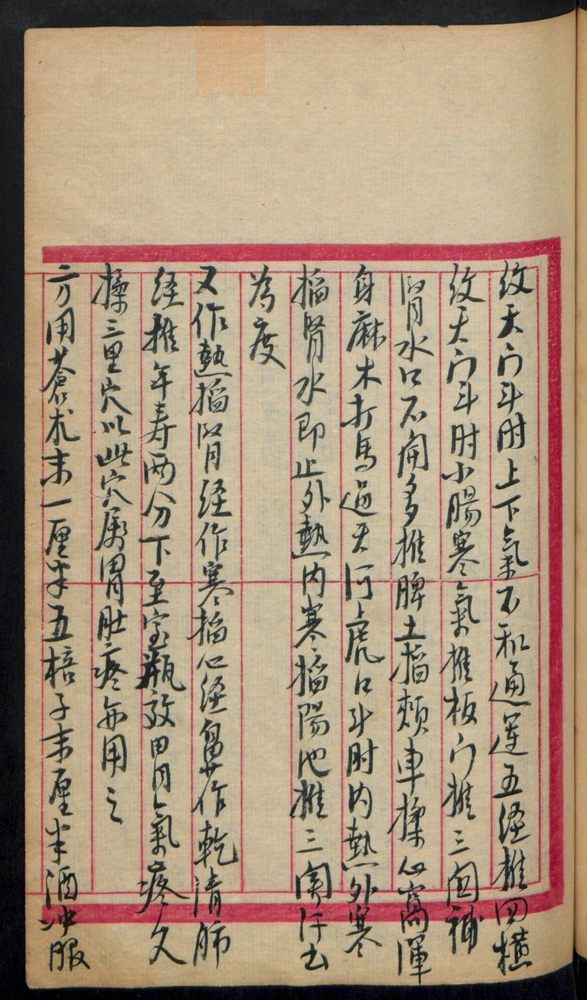 紋天门斗肘上下氣不和通運五经推四橫
紋天门斗肘小腸寒氣推板门推三関補
腎水口不開多推脾土掐頰車揉心窩渾
身麻木打馬過天河上虎口斗肘内熱外寒
掐腎水即止外熱内寒掐陽池推三関汗出
為度
又作熱掐腎经作寒掐心经鼻作乾清肺
经推年寿两分下至宝瓶效男氣疼久
揉三里穴以此穴属胃肚疼亦用之
方用蒼术末一厘半五棓子末厘半酒冲服